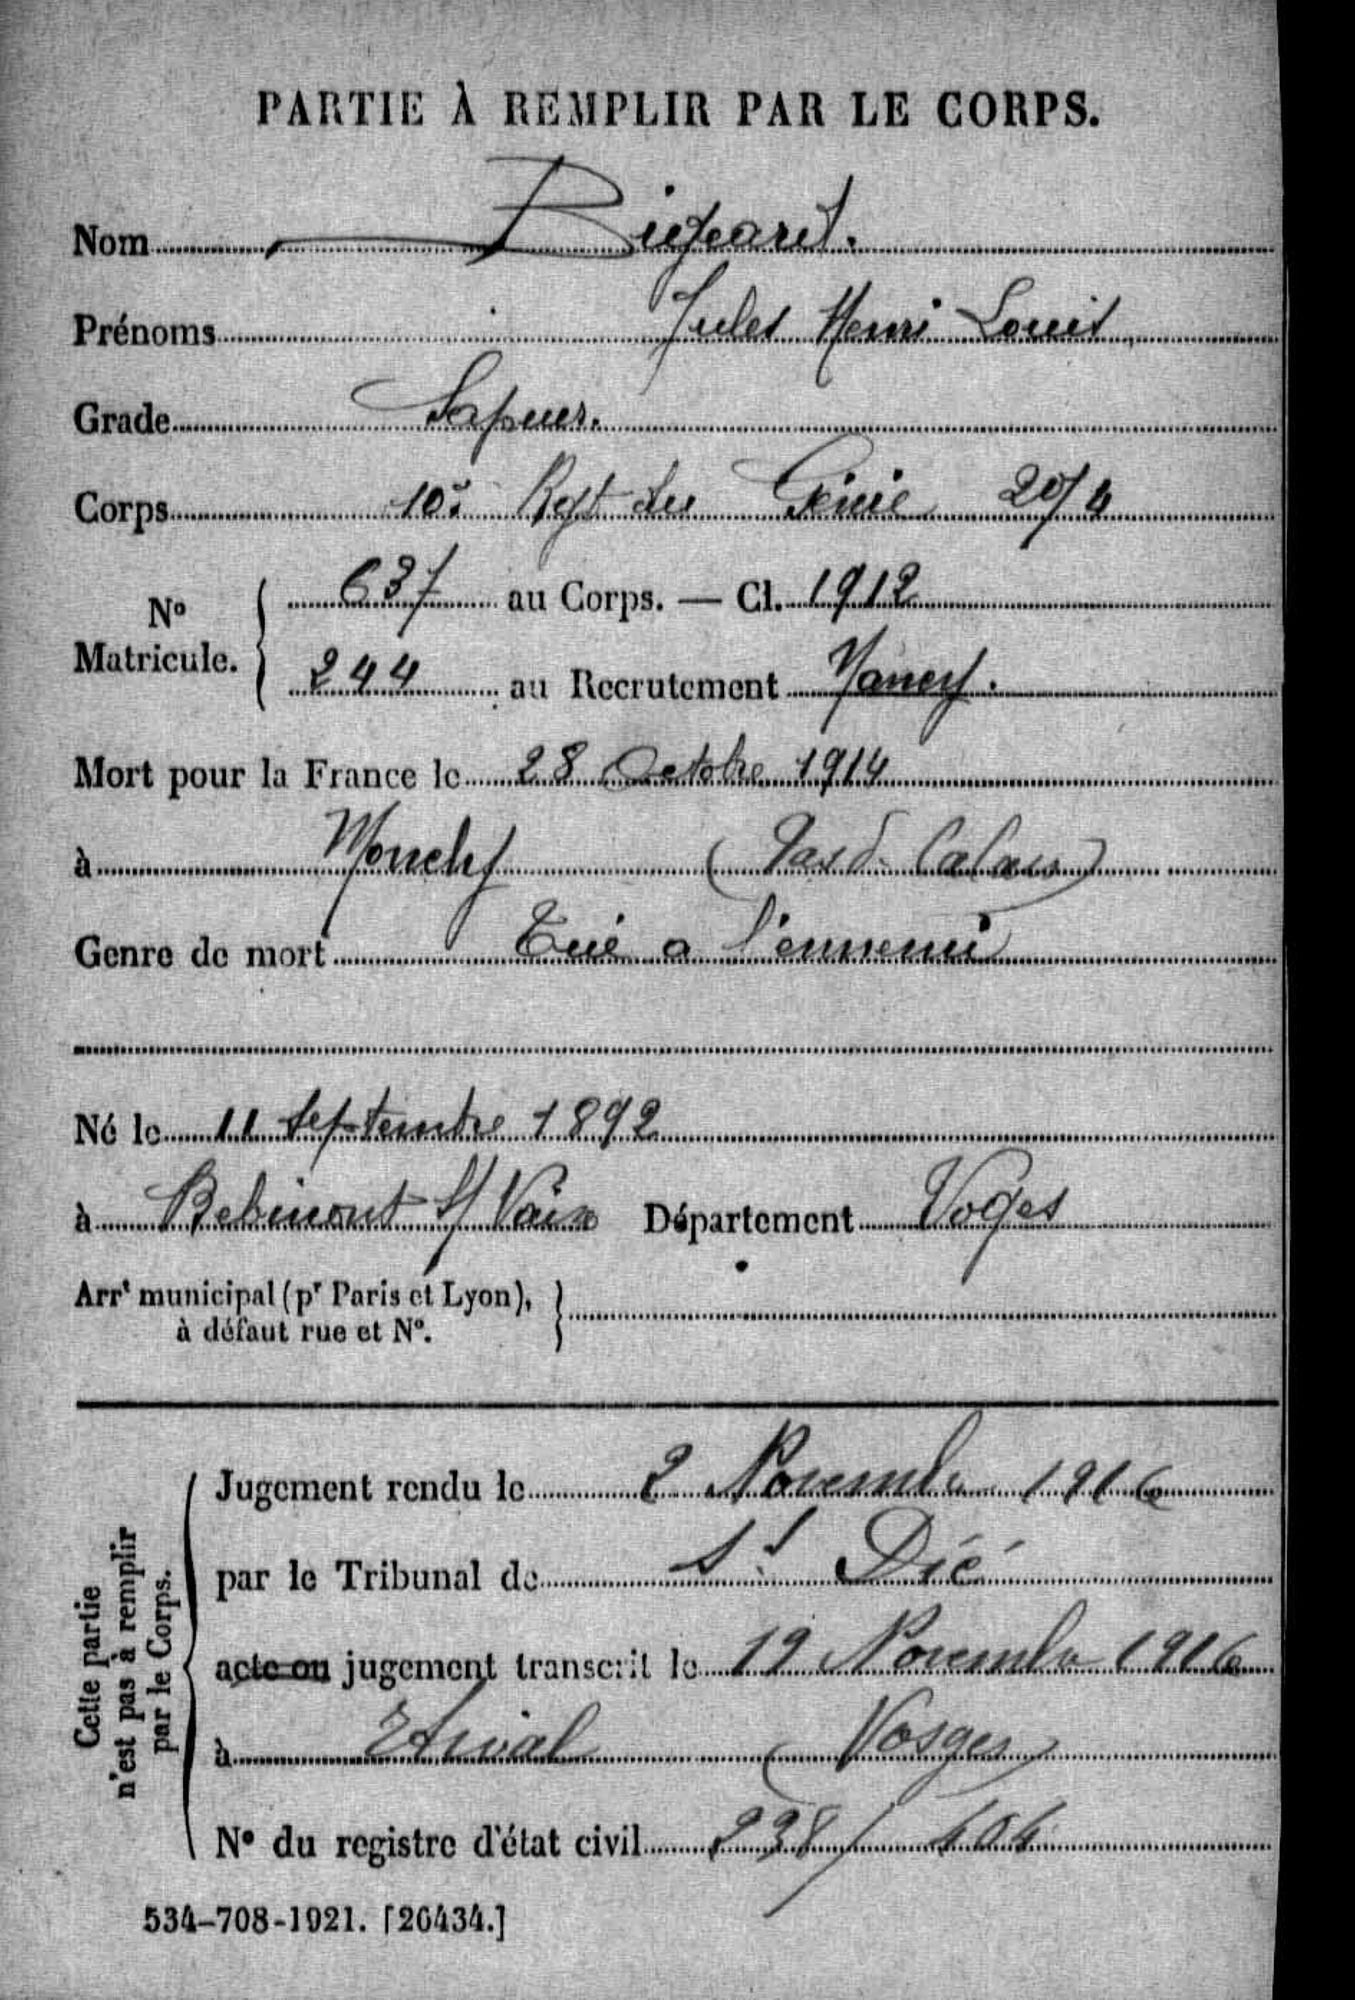 PARTIE À REMPLIR PAR LE CORPS.
Nom
Prénoms Jules Henri Louis
Grade Sapeur.
Corps 10e Regt du Génie 20/4
No Matricule. { 637 au Corps. — Cl. 1912
244 au Recrutement Nancy.
Mort pour la France le 28 Octobre 1914
à Monchy (Pas d. Calais)
Genre de mort Tué a l'ennemi
Né le 11 Septembre 1892
à Département Voges
Arrt municipal (pr Paris et Lyon), }
à défaut rue et No.
Cette partie
n'est pas à remplir
par le Corps.
Jugement rendu le 2 Novembre 1916
par le Tribunal de St Dié
acte ou jugement transcrit le 19 Novembre 1916
à Etival (Vosges)
No du registre d'état civil 238/
534-708-1921. [26434.]